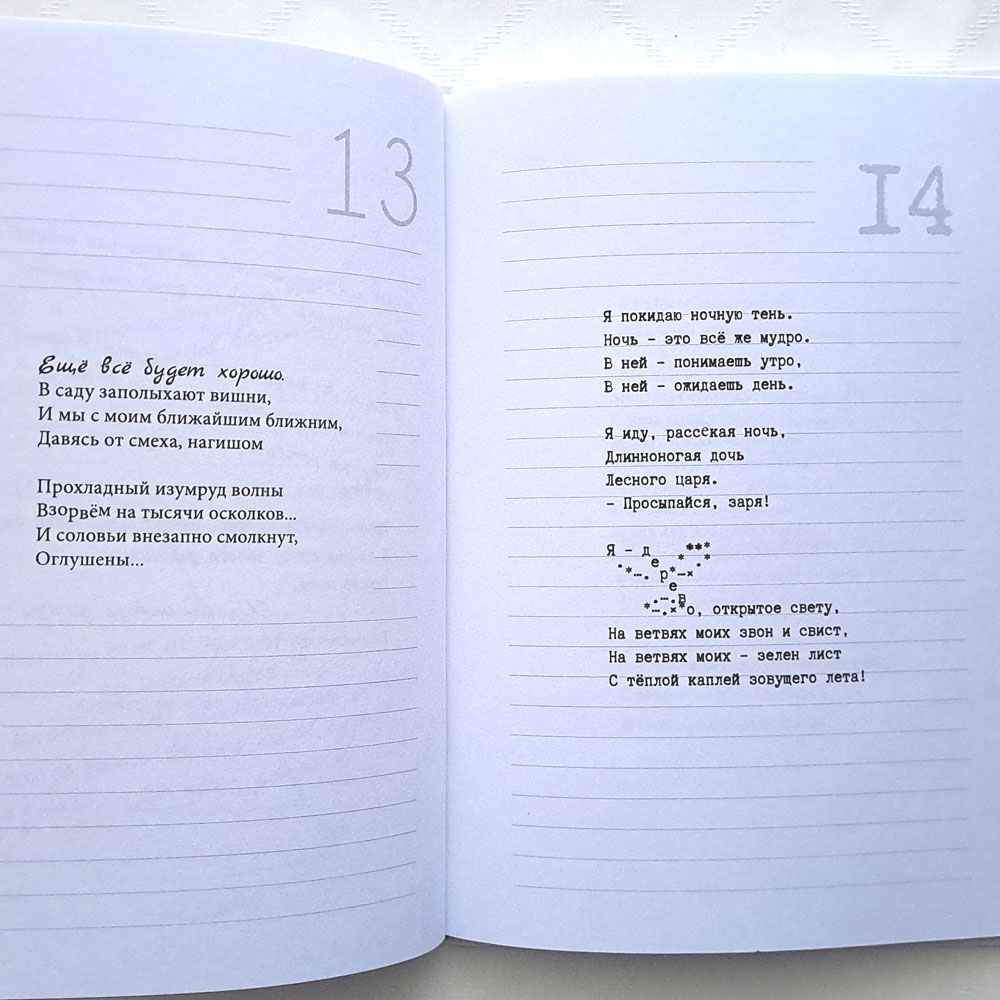 13
Ещё всё будет хорошо.
В саду заполыхают вишни,
И мы с моим ближайшим ближним,
Давясь от смеха, нагишом
Прохладный изумруд волны
Взорвём на тысячи осколков...
И соловьи внезапно смолкнут,
Оглушены...
14
Я покидаю ночную тень.
Ночь - это всё же мудро.
В ней - понимаешь утро,
В ней - ожидаешь день.
Я иду, рассекая ночь,
Длинноногая дочь
Лесного царя.
- Просыпайся, заря!
Я - дерево, открытое свету,
На ветвях моих звон и свист,
На ветвях моих - зелен лист
С тёплой каплей зовущего лета!